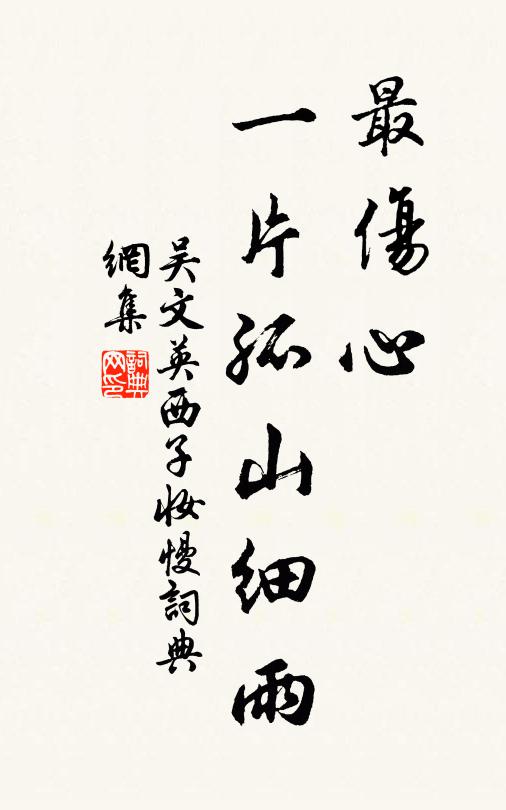 最傷心
一片孤山細雨
吳文英西子妝慢詞典
網集
詞典
网印